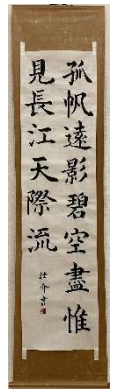 孤帆遠影碧空盡惟
見長江天際流